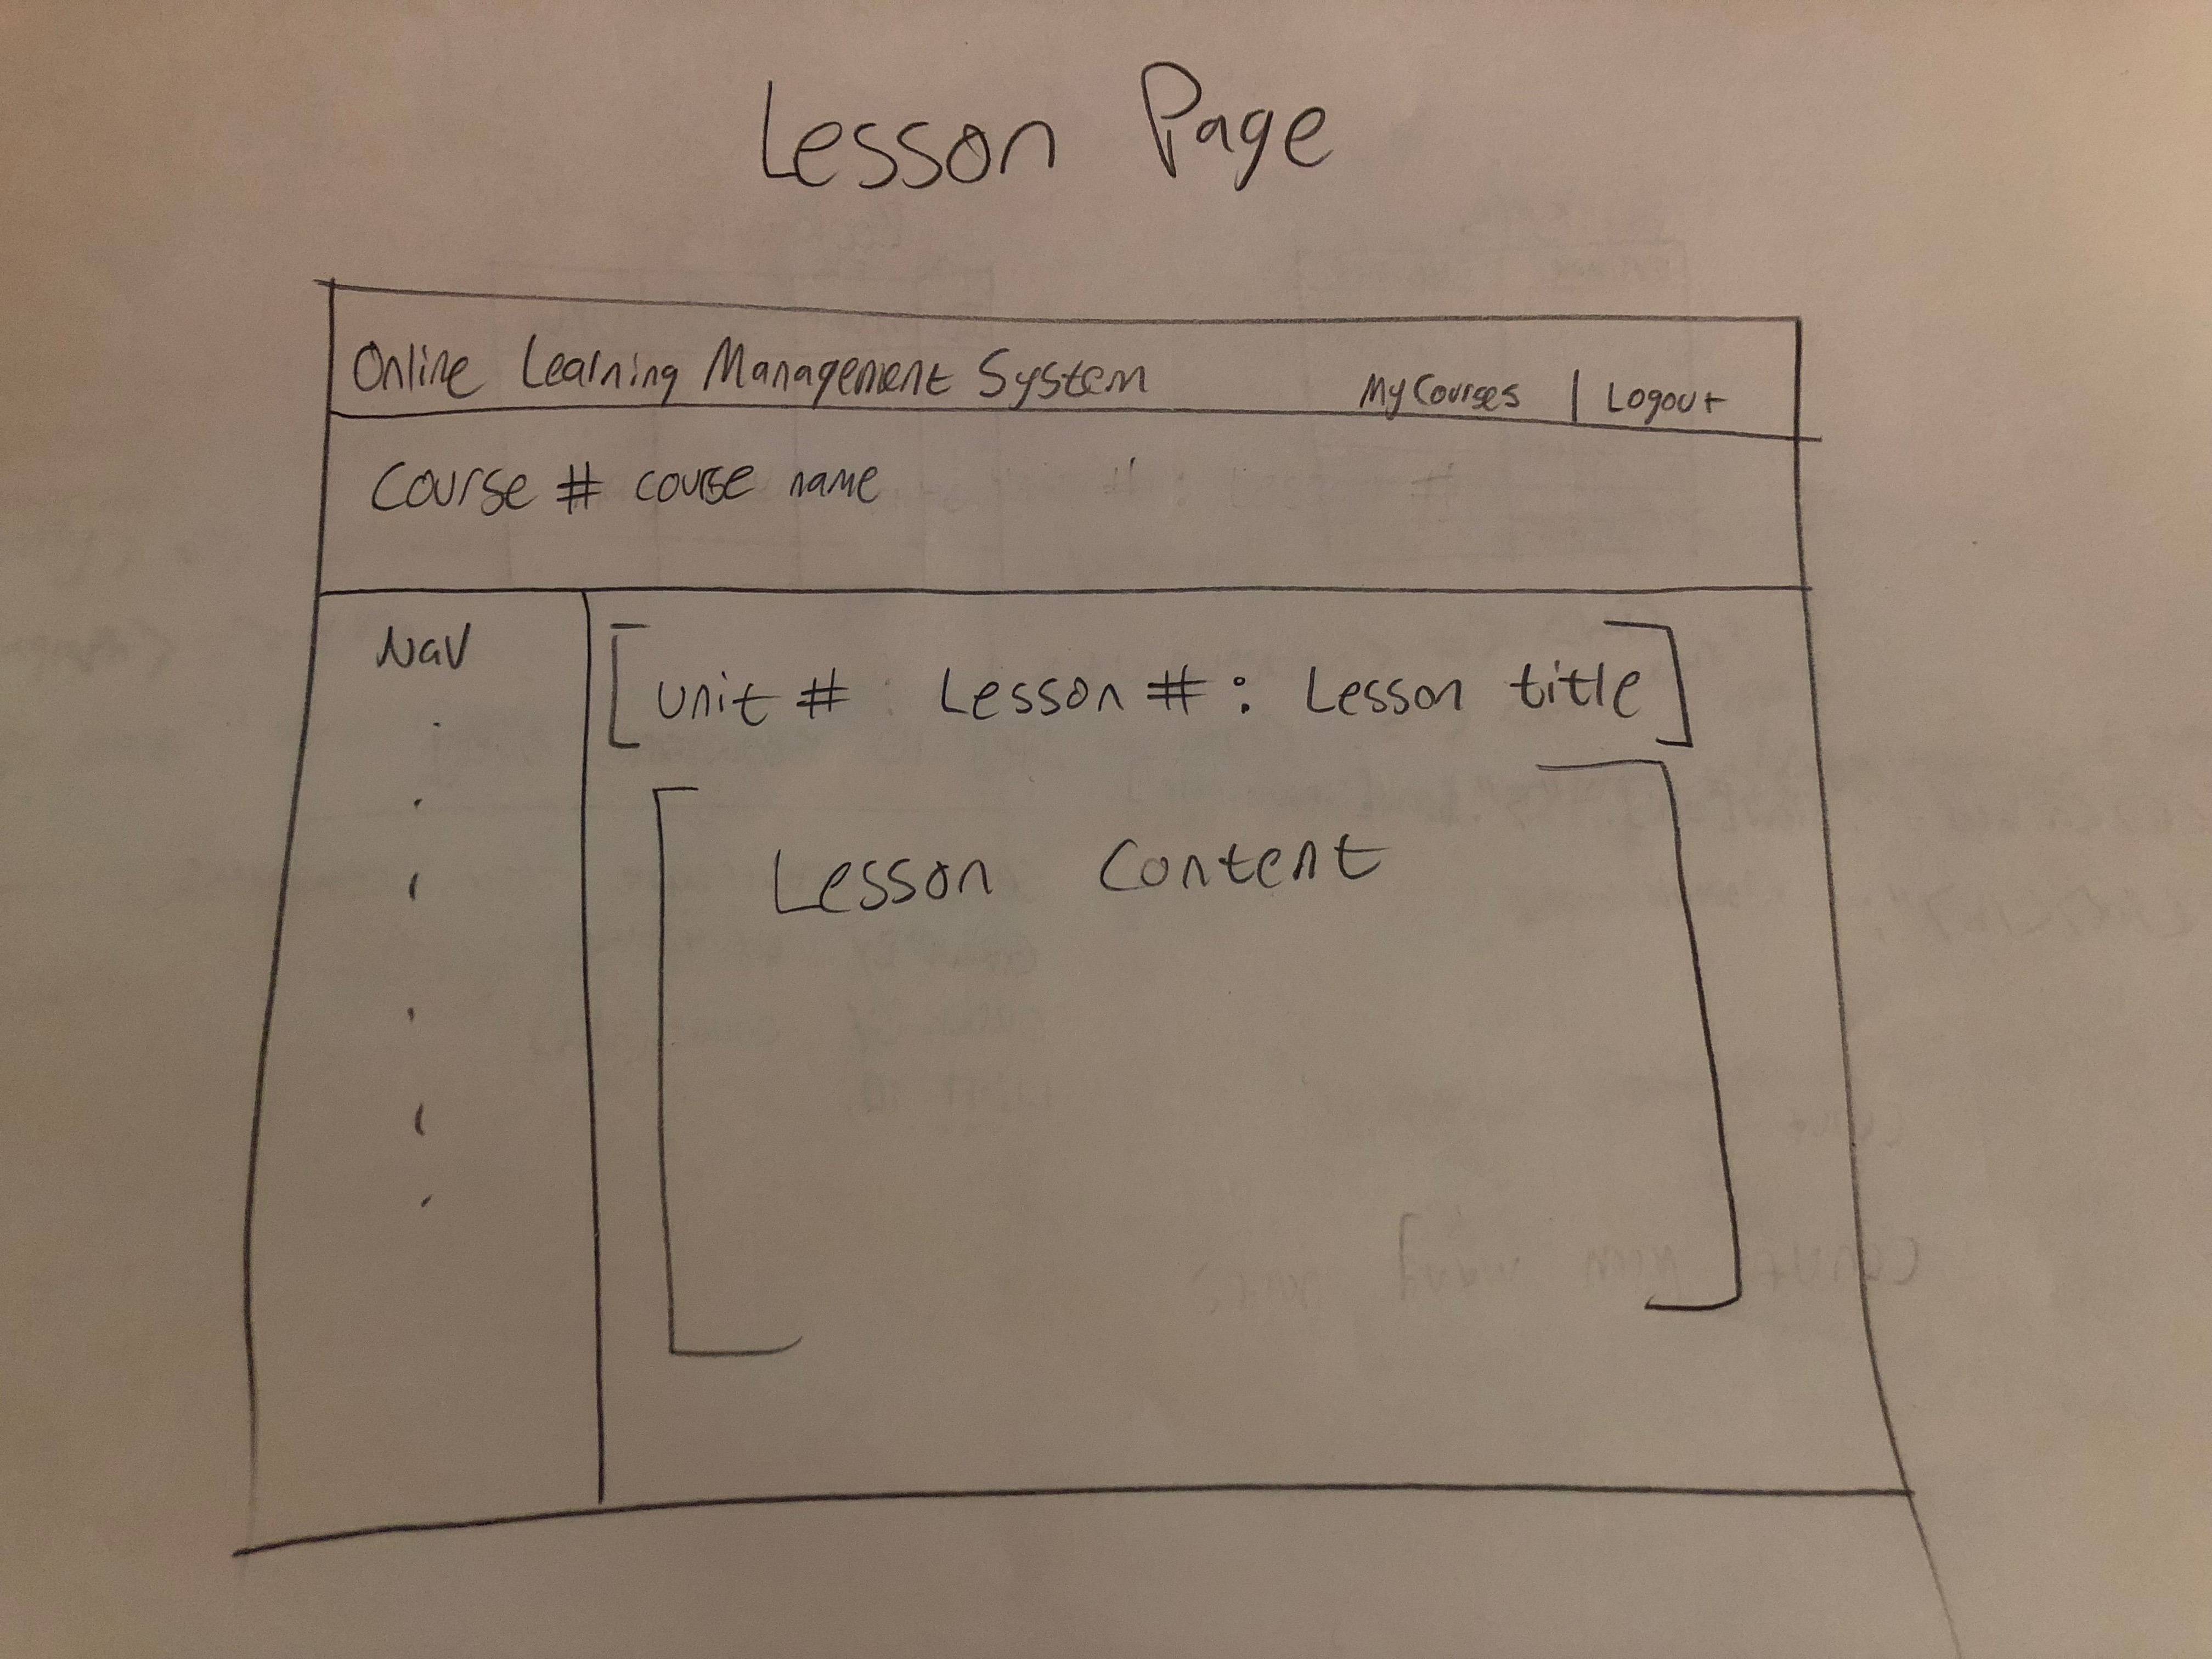 Lesson Page
Online Learning Management System My Courses | Logout
Course # course name
Nav
[unit # Lesson # : Lesson title]
[Lesson Content]